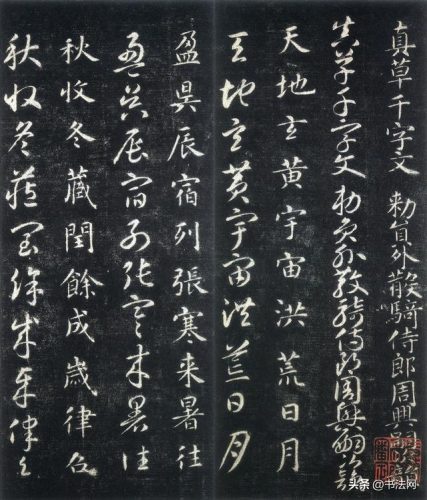 真草千字文 勑員外散騎侍郎周興嗣次韻
真草千字文 勑員外散騎侍郎周興嗣次韻
天地玄黃宇宙洪荒日月
天地玄黃宇宙洪荒日月
盈昃辰宿列張寒来暑往
盈昃辰宿列張寒来暑往
秋收冬藏閏餘成歲律召
秋收冬藏閏餘成歲律召
头条@书法网